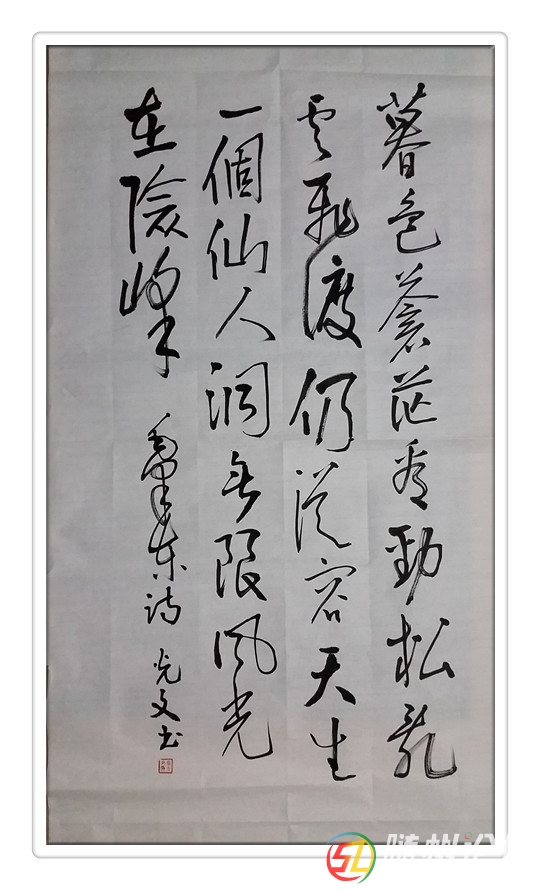 暮色蒼茫看勁松亂
雲飛渡仍從容天生
一個仙人洞無限風光
在險峰
毛澤東詩 光文书
随州论